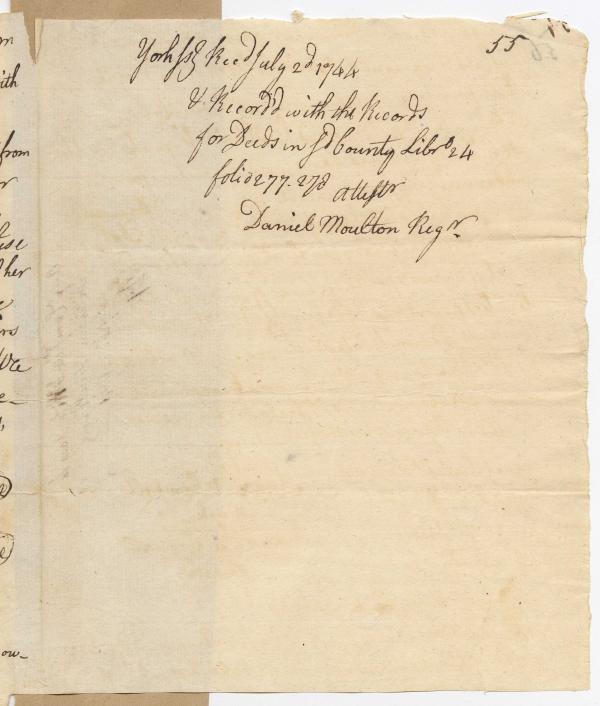 55
56
York ss Recd July 2d 1744
& Record'd with the Records
for Deeds in sd County Libro 24
folio 277. 278
Attestr
Daniel Moulton Regr.
ith
from
her
ow-